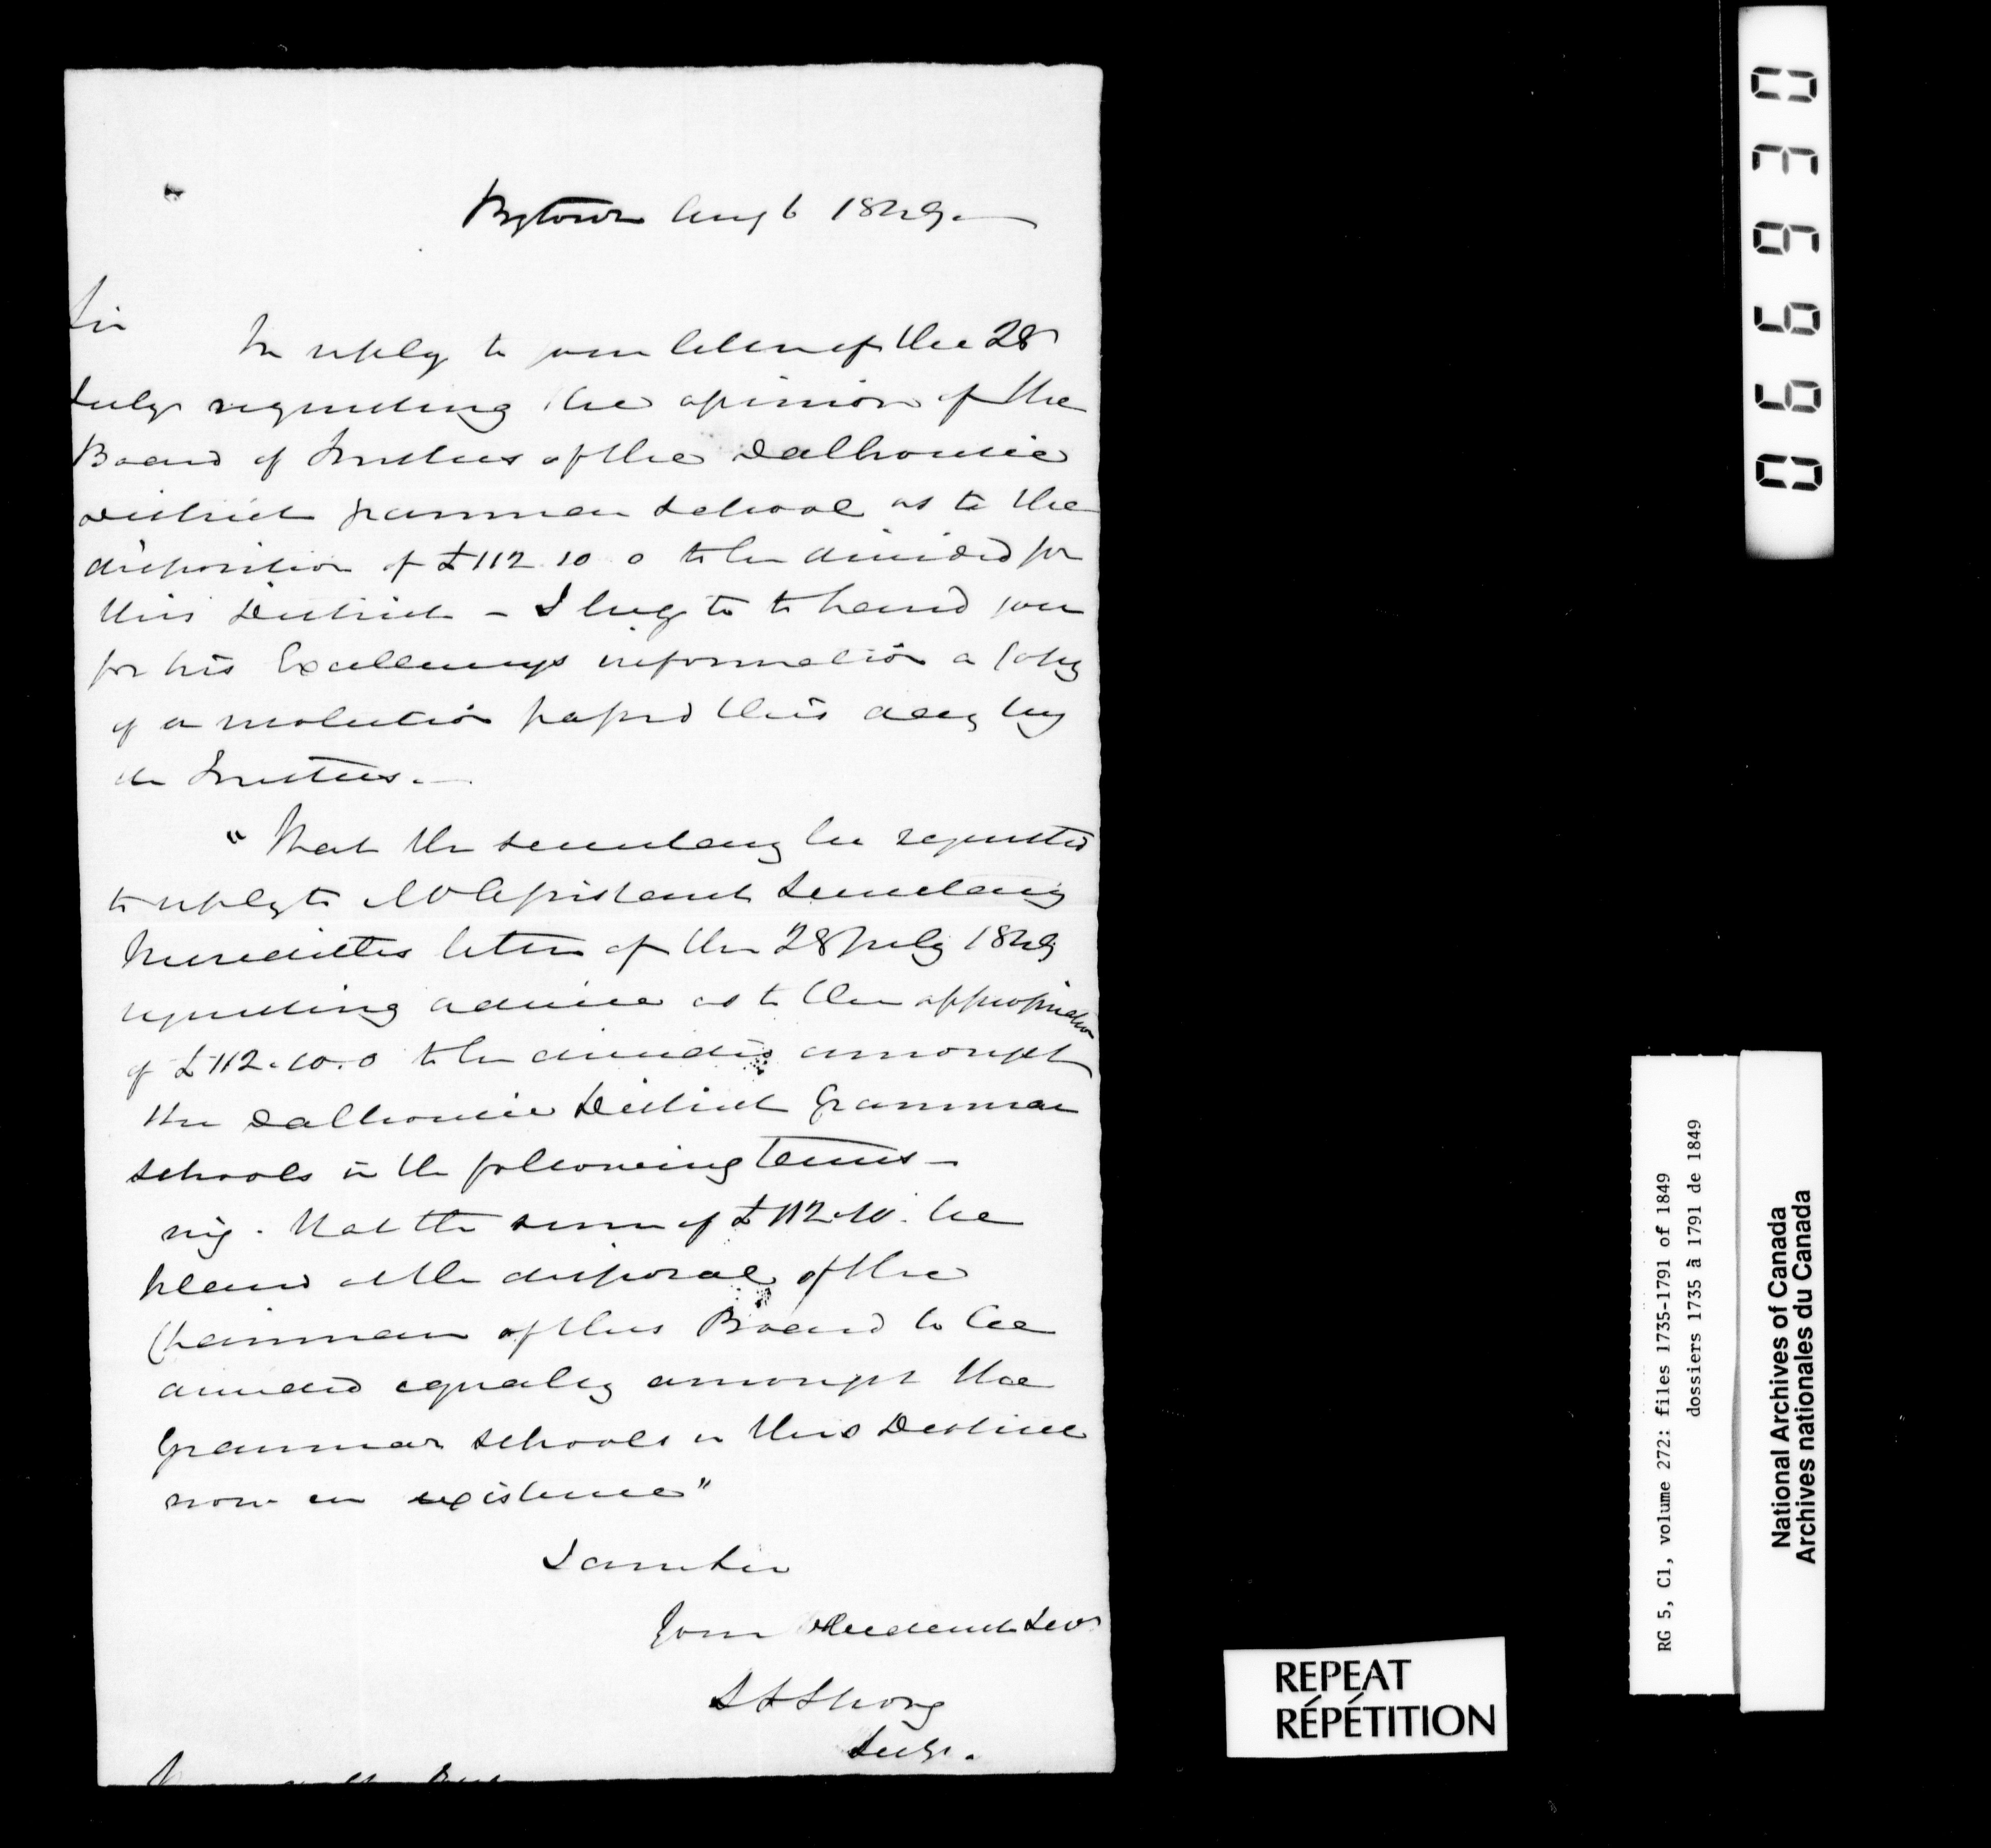 Bytown Aug 6 1849.
Sir
In reply to your letter of the 28
July requesting the opinion of the
Board of Trustees of the Dalhousie
District Grammar School as to the
disposition of £112 10 0 to be divided for
this District - I beg to to hand you
for his Excellencys information a Copy
of a resolution passed this day by
the Trustees. -
"That the Secretary be requested
to reply to Mr Assistant Secretary
Merediths letter of the 28 July 1849
requesting advice as to the appropriation
of £112.10.0 to be divided amongst
the Dalhousie District Grammar
Schools in the following terms -
viz. that the sum of £112.10. be
placed at the disposal of the
Chairman of this Board to be
divided equally amongst the
Grammar Schools in this District
now in existence"
I am Sir
Your Obedient Servt
S S Strong
Secy.
0 6 6 9 3 0
RG 5, C1, volume 272: files 1735-1791 of 1849
dossiers 1735 à 1791 de 1849
National Archives of Canada
Archives nationales du Canada
REPEAT
RÉPÉTITION